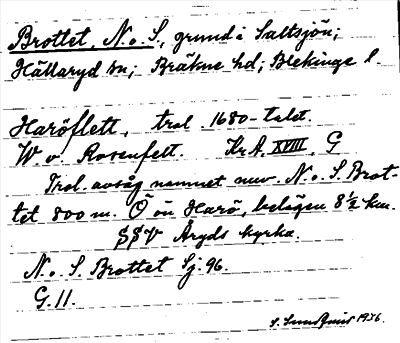 Brottet, N. o. S., grund i Saltsjön;
Hällaryd sn; Bräkne hd; Blekinge l.
Haröflett, trol 1680-talet.
W. v. Rosenfelt. Kr. A. XVIII. G
Trol. avsåg namnet nuv. N. o. S. Brot-
tet 800 m. Ö ön Harö, belägen 8½ km.
SSV Åryds kyrka.
N. o. S. Brottet Sj. 96.
G. 11.
1936.